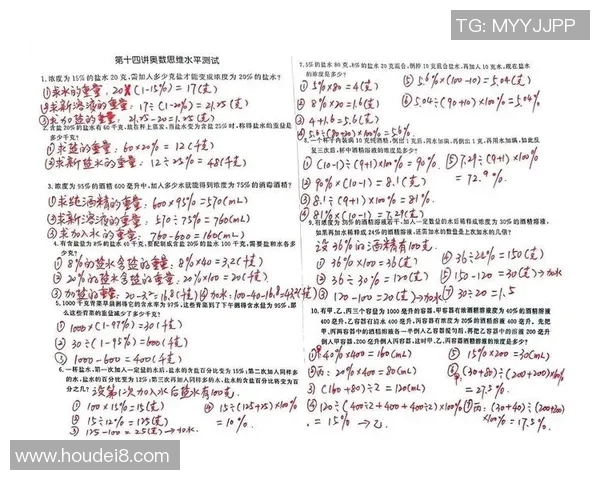 TG: MYYJJPP
第十四讲奥数思维水平测试
1.浓度为15%的盐水20克,需加入多少克盐才能变成浓度为20%的盐水?
①求水的重量: 20×(1-15%)=17(克)
②求新溶液的重量: 17÷(1-20%)=21.25(克)
③求加盐的重量: 21.25-20=1.25(克)
2.含盐20%的盐水有60千克,放在秤上蒸发,当盐水变为含盐25%时,称得盐水的重量是
多少千克?
①求盐的重量: 60×20%=12(千克)
②求新盐水的重量: 12÷25%=48(千克)
3.浓度为95%的酒精600毫升中,加入多少水就能得到浓度为75%的消毒酒精?
①求纯酒精的重量: 600×95%=570(mL)
②求新溶液的重量: 570÷75%=760(mL)
③求加入水的重量: 760-600=160(mL)
4.有含盐量为8%的盐水40千克,要配制成含盐20%的盐水100千克,需要盐和水各多
少克?
①8%的盐水含盐的重量: 8%×40=3.2(千克)
②20%的盐水含盐的重量: 20%×100=20(千克)
③加盐的重量: 20-3.2=16.8(千克) ④加水: 100-40-16.8=43.2(千克)
5.1000千克青菜早晨测得它的含水率为97%,这些青菜到了下午测得含水量为95%,那
么这些青菜的重量减少了多少千克?
①1000×(1-97%)=30(千克)
②30÷(1-95%)=600(千克)
③1000-600=400(千克)
6.一杯盐水,第一次加入一定量的水后,盐水的含盐百分比变为15%;第二次加入同样多
的水,盐水的百分比变为12%;第三次再加入同样多的水,盐水的含盐百分比将变为百
分之几?
设第1次加入水后盐水有100克.
①100×15%=15(克)
④15÷(125+25)×100%
②15÷12%=125(克)
=10%.
③125-100=25(克)→加水.
7.5%的盐水80克,8%的盐水20克混合,倒掉10克混合盐水,再加入10克水,现在盐水
的浓度是多少?
①5%×80=4(克)
⑤5.6%×(100-10)=5.04(克)
②8%×20=1.6(克)
⑥5.04÷(90+10)×100%=5.04%
③4+1.6=5.6(克)
④5.6÷(80+20)×100%=5.6%.
①(10-1)÷(9+1)×100%=90%.
⑤7.29÷(9+1)×100%
②90%×(10-1)=8.1(克)
=72.9%.
③8.1÷(9+1)×100%=81%
④81%×(10-1)=7.29(克)
9.有浓度为36%的酒精溶液若干,加入一定数量的水后稀释成浓度为30%的酒精溶液,
如果再加水稀释成24%的酒精溶液,还需加水的数量是上次加水的几倍?
设36%的酒精有100克.
①36%×100=36(克)
④36÷24%=150(克)
②36÷30%=120(克)
⑤150-120=30(克)→加水
③120-100=20(克)→加水
⑦30÷20=1.5
10.有甲、乙、丙三个容量为1000毫升的容器.甲容器有浓度为40%的酒精溶液400毫
升,乙容器有清水400毫升,丙容器有浓度为20%的酒精溶液400毫升,先把
甲、丙两容器中的酒精溶液各一半倒入乙容器搅匀后,再把乙容器中的溶液200毫
升倒入甲容器,200毫升倒入丙容器,这时甲、乙、丙容器酒精溶液的浓度是多少?
①甲:40%×400=160(mL)
⑤15%×200=30(mL)
②丙:20%×400=80(mL)
⑥甲:(30+80)÷(200+200)×100%
③(160+80)÷2=120(mL)
=27.5%.
④120÷(400÷2+400+400÷2)×100%
⑦丙:(30+40)÷(200+200)
=15%→乙
×100%=17.5%.
www.houdei8.com